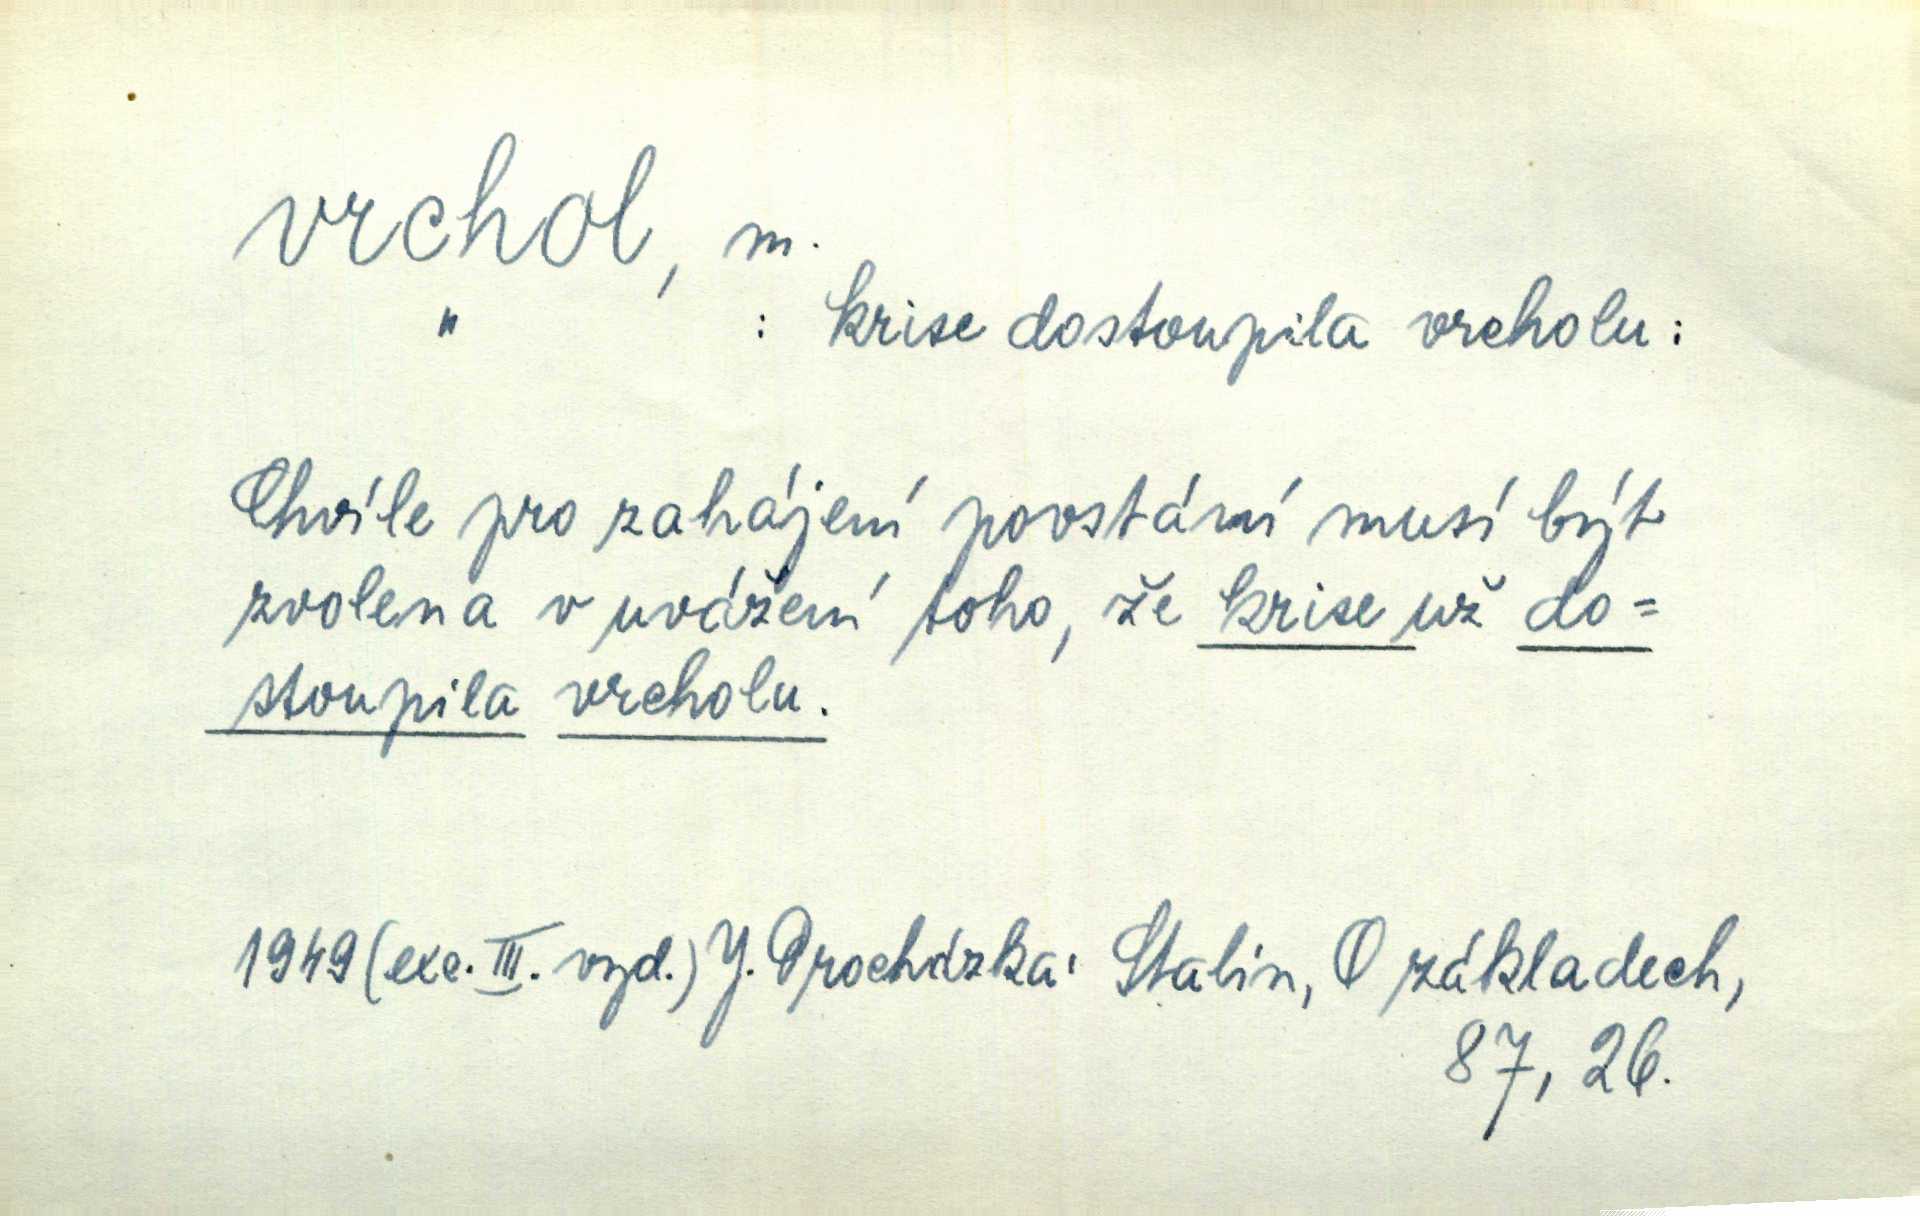 vrchol, m.
" : krise dostoupila vrcholu:
Chvíle pro zahájení povstání musí být
zvolena v uvážení toho, že krise už do=
stoupila vrcholu.
1949 (exc. III. vyd.) J. Procházka: Stalin, O základech,
87, 26.